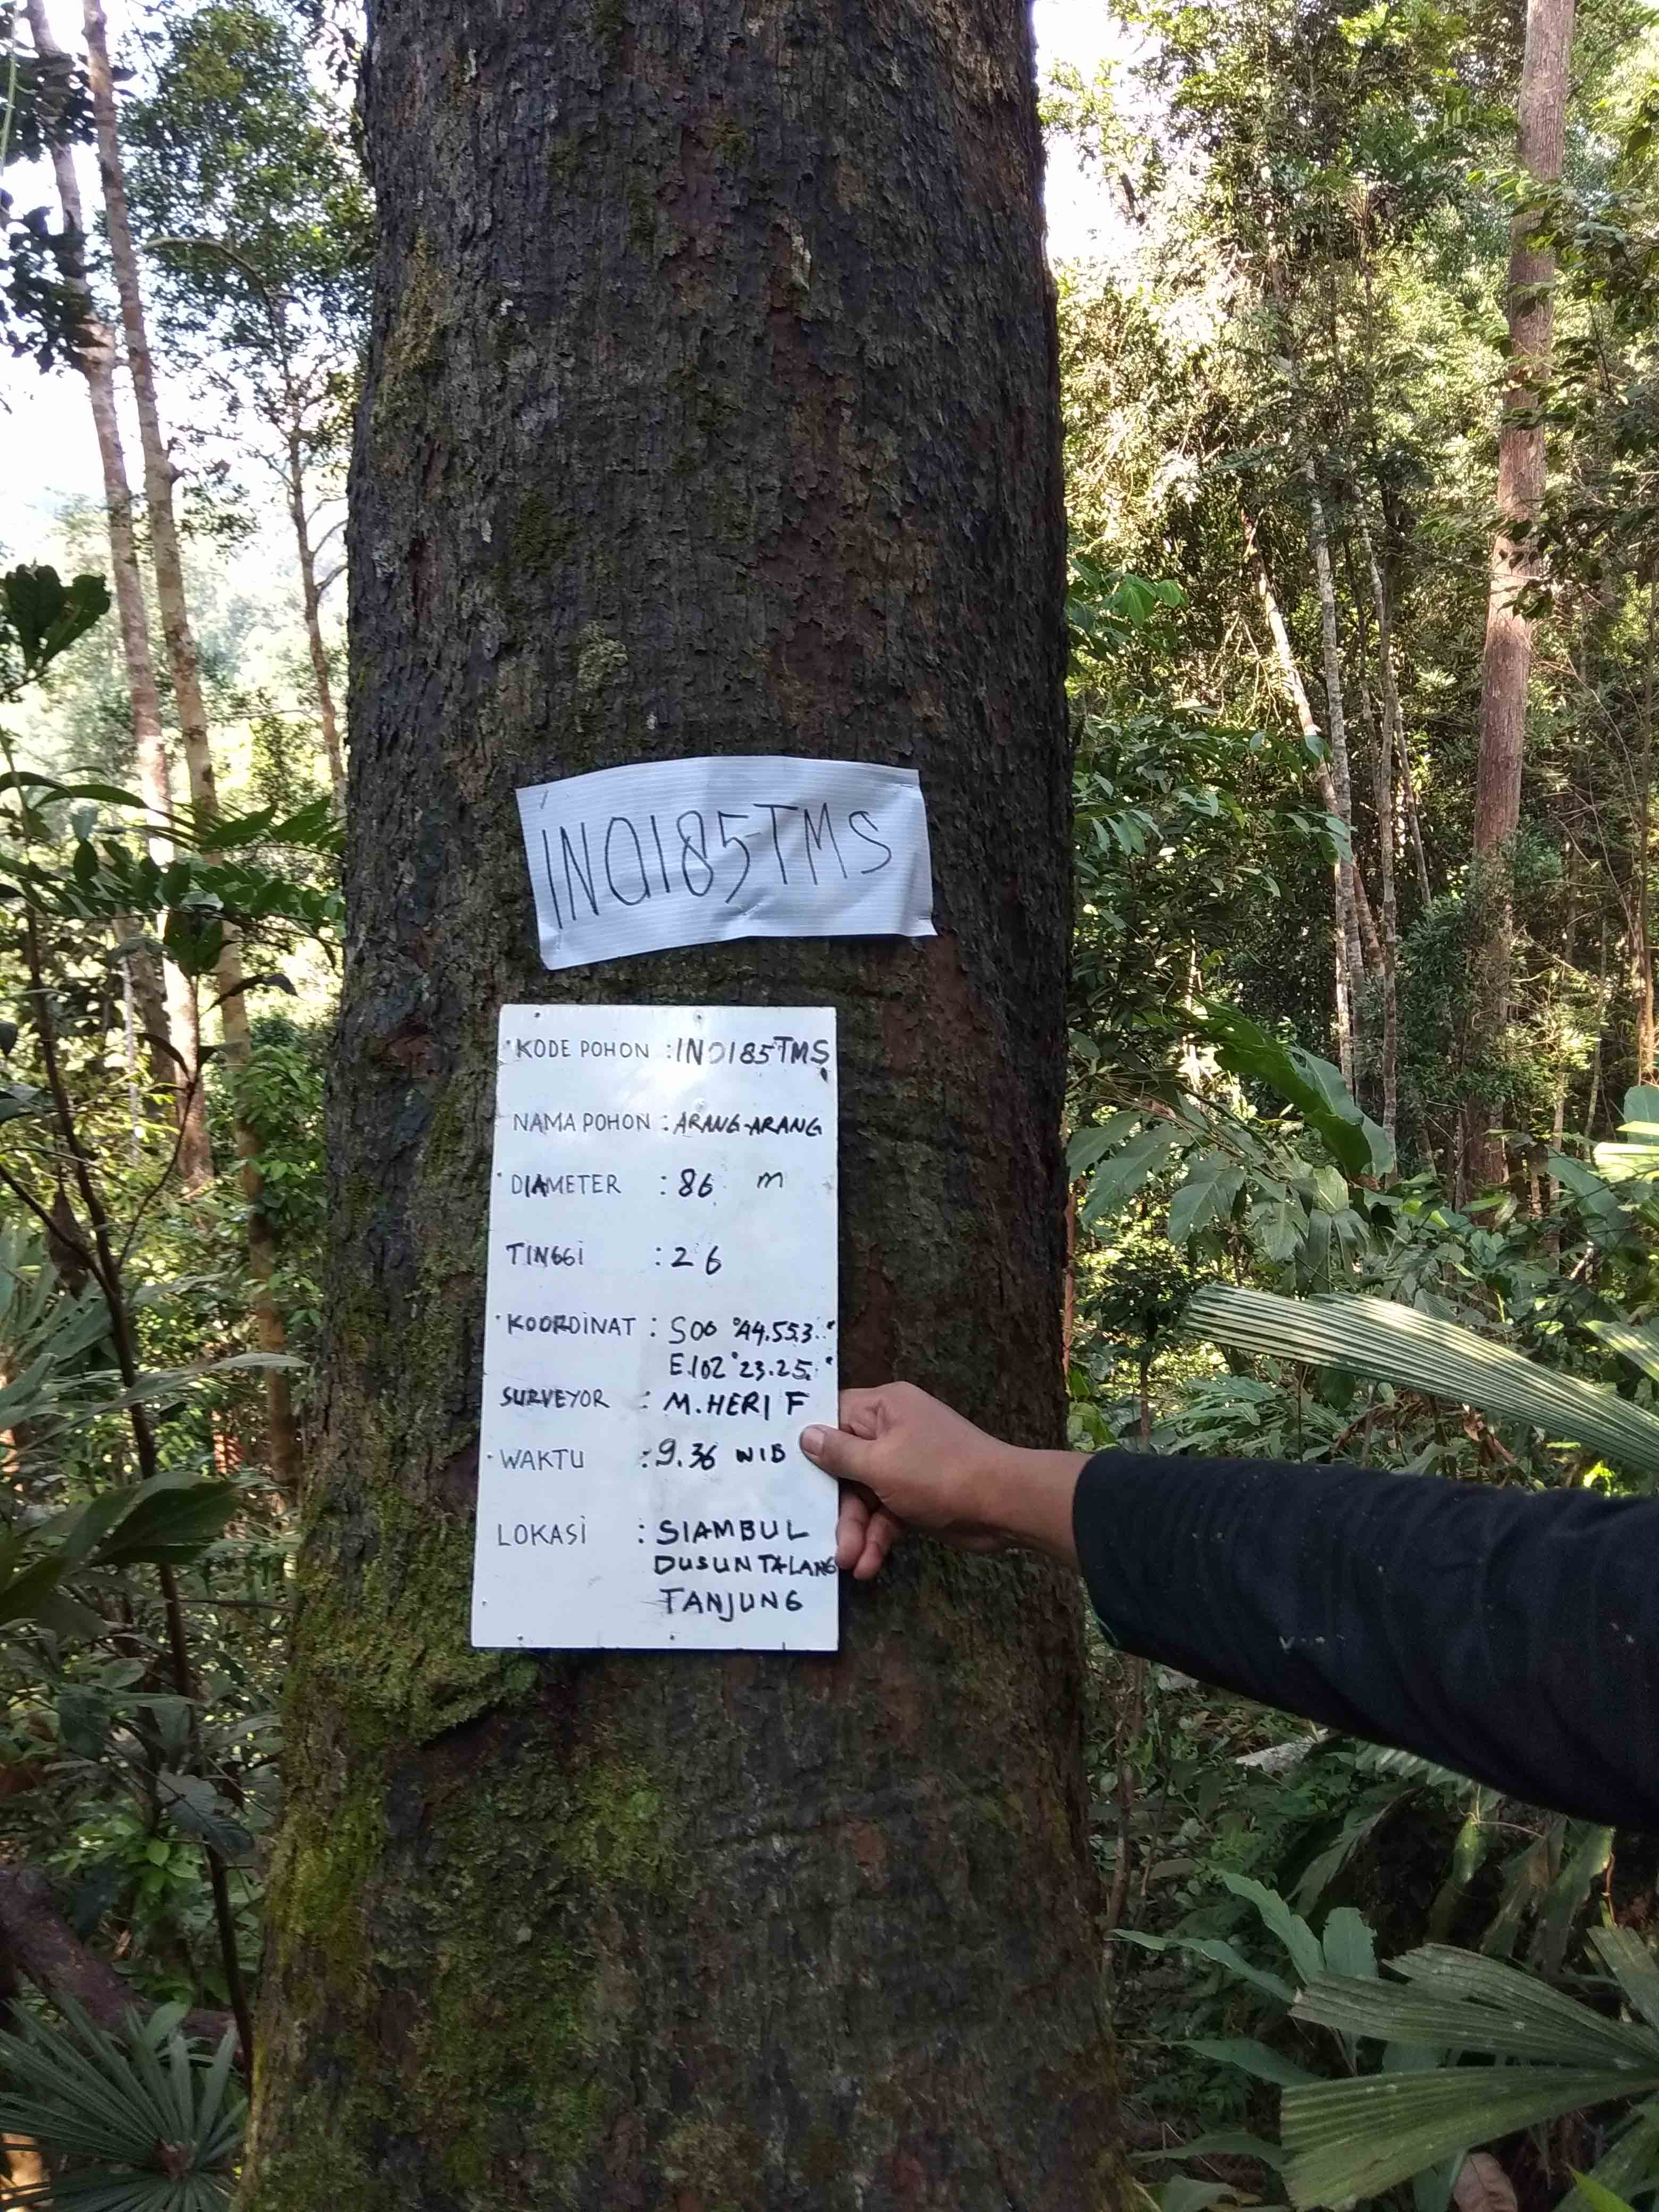 INO185TMS
KODE POHON : INO185TMS
NAMA POHON : ARANG-ARANG
DIAMETER : 86 m
TINGGI : 26
KOORDINAT : S00 °44.553."
E.102°23.25."
SURVEYOR : M.HERI F
WAKTU : 9.36 WIB
LOKASI : SIAMBUL
DUSUN TALANG
TANJUNG